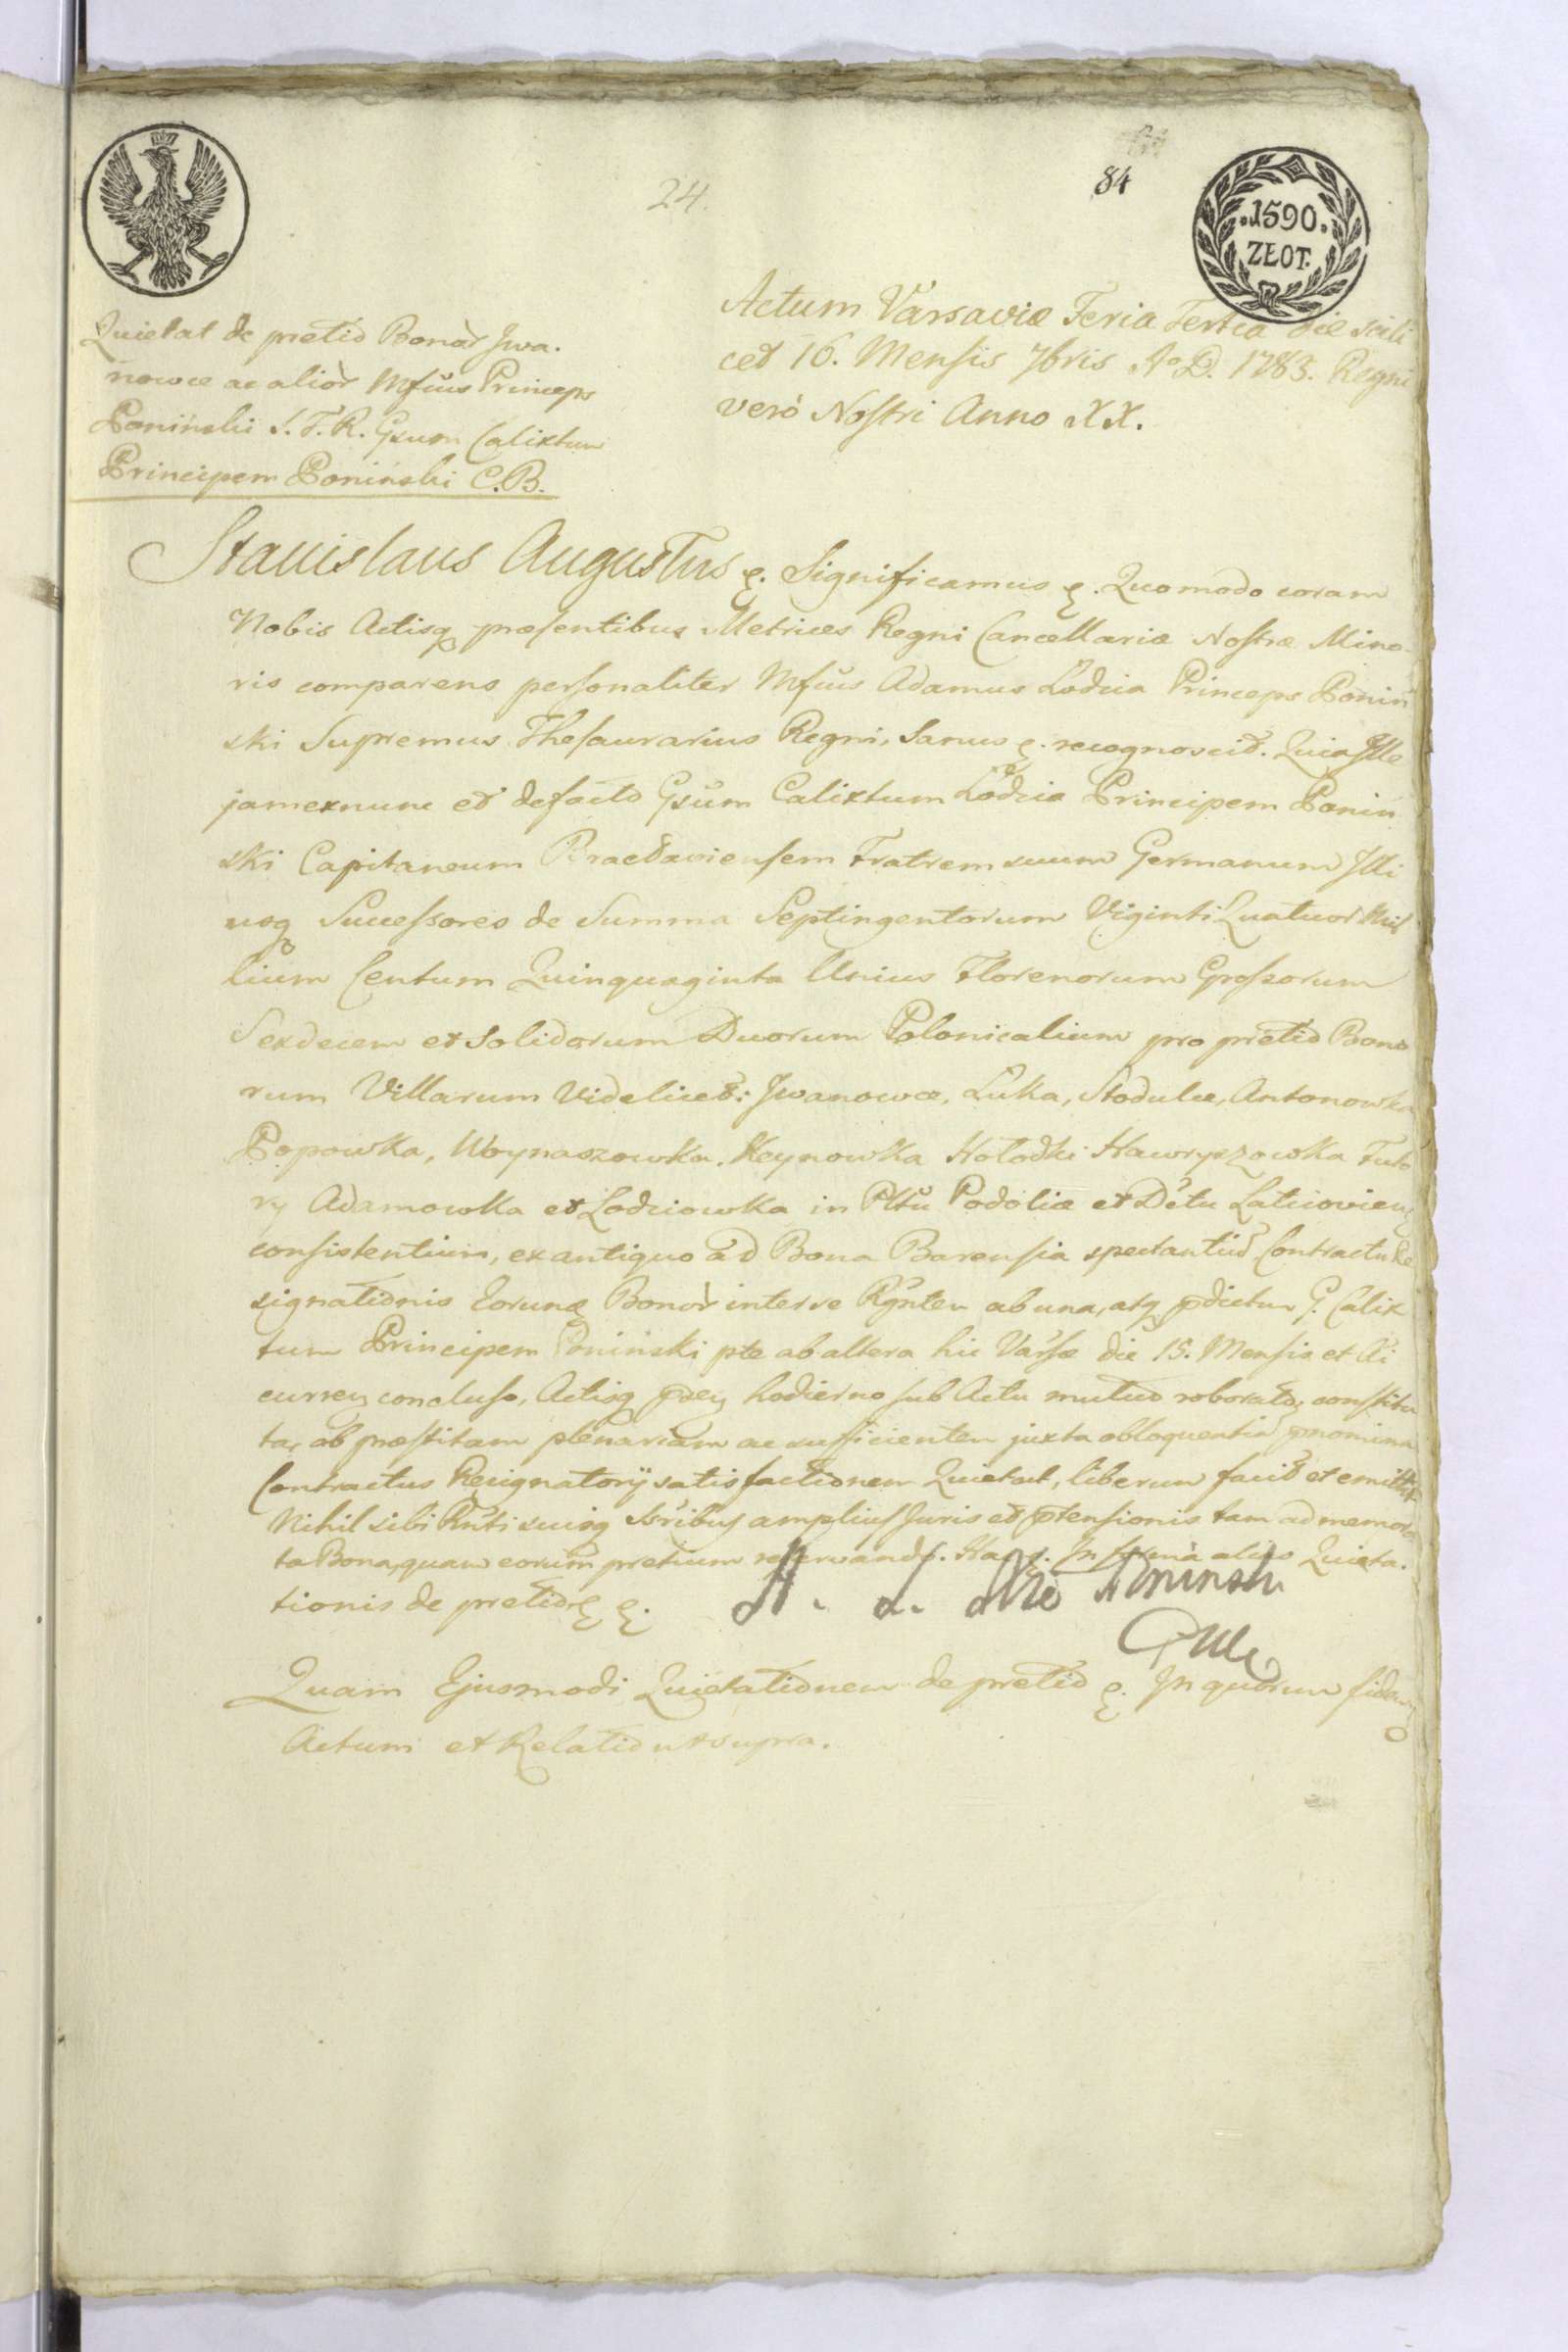 24.
84
.1590.
ZŁOT.
Quietat de pretio Bonor Jwa-
nowce ac alior Mfcus Princeps
Poniński S. T. R. Gsum Calixtum
Principem Poniński C.B.
Actum Varsaviæ Feria Tertia die scili
cet 16. Mensis 7bris Ao D. 1783. Regni
vero Nostri Anno XX.
Stanislaus Augustus &. Significamus &. Quomodo coram
Nobis Actisq præsentibus Metrices Regni Cancellariæ Nostræ Mino-
ris comparens personaliter Mfcus Adamus Łodzia Princeps Poniń
ski Supremus Thesaurarius Regni, Sanus &. recognovit. Quia Ille
jamexnunc et defacto Gsum Calixtum Łodzia Principem Poniń
ski Capitaneum Bracłaviensem Fratrem suum Germanum Illi
usq Successores de Summa Septingentorum Viginti Quatuor Mil
lium Centum Quinquaginta Unius Florenorum Grossorum
Sexdecem et Solidorum Duorum Polonicalium pro pretio Bono
rum Villarum Videlicet: Jwanowce, Łuka, Stodulce, Antonowka
Popowka, Woynaszowka, Keynowka Hołodki Hawryszowka Futo
ry Adamowka et Lodziowka in Pltu Podoliæ et Dctu Laticovien
consistentium, ex antiquo ad Bona Barensia spectantiu Contractu Re
signationis Eorund Bonor inter se Rgnten ab una, atq pdictum G. Calix
tum Principem Poniński pte ab altera hic Varsæ die 15. Mensis et Ai
curren concluso, Actisq pden hodierno sub Actu mutuo roborato, constitu
ta, ob præstitam plenariam ac sufficientem juxta obloquentia pnominati
Contractus Resignatorij satisfactionem Quietat, liberum facit et emittit
Nihil sibi Rnti suisq Ssribus amplius Juris et ptensionis tam ad memora
ta Bona, quam eorum pretium reservando. Ha &. In forma alias Quieta-
tionis de pretio & &.
A. Ł. Xże Poninski
Quam Ejusmodi Quietationem de pretio &. In quorum fidem
Actum et Relatio ut supra.